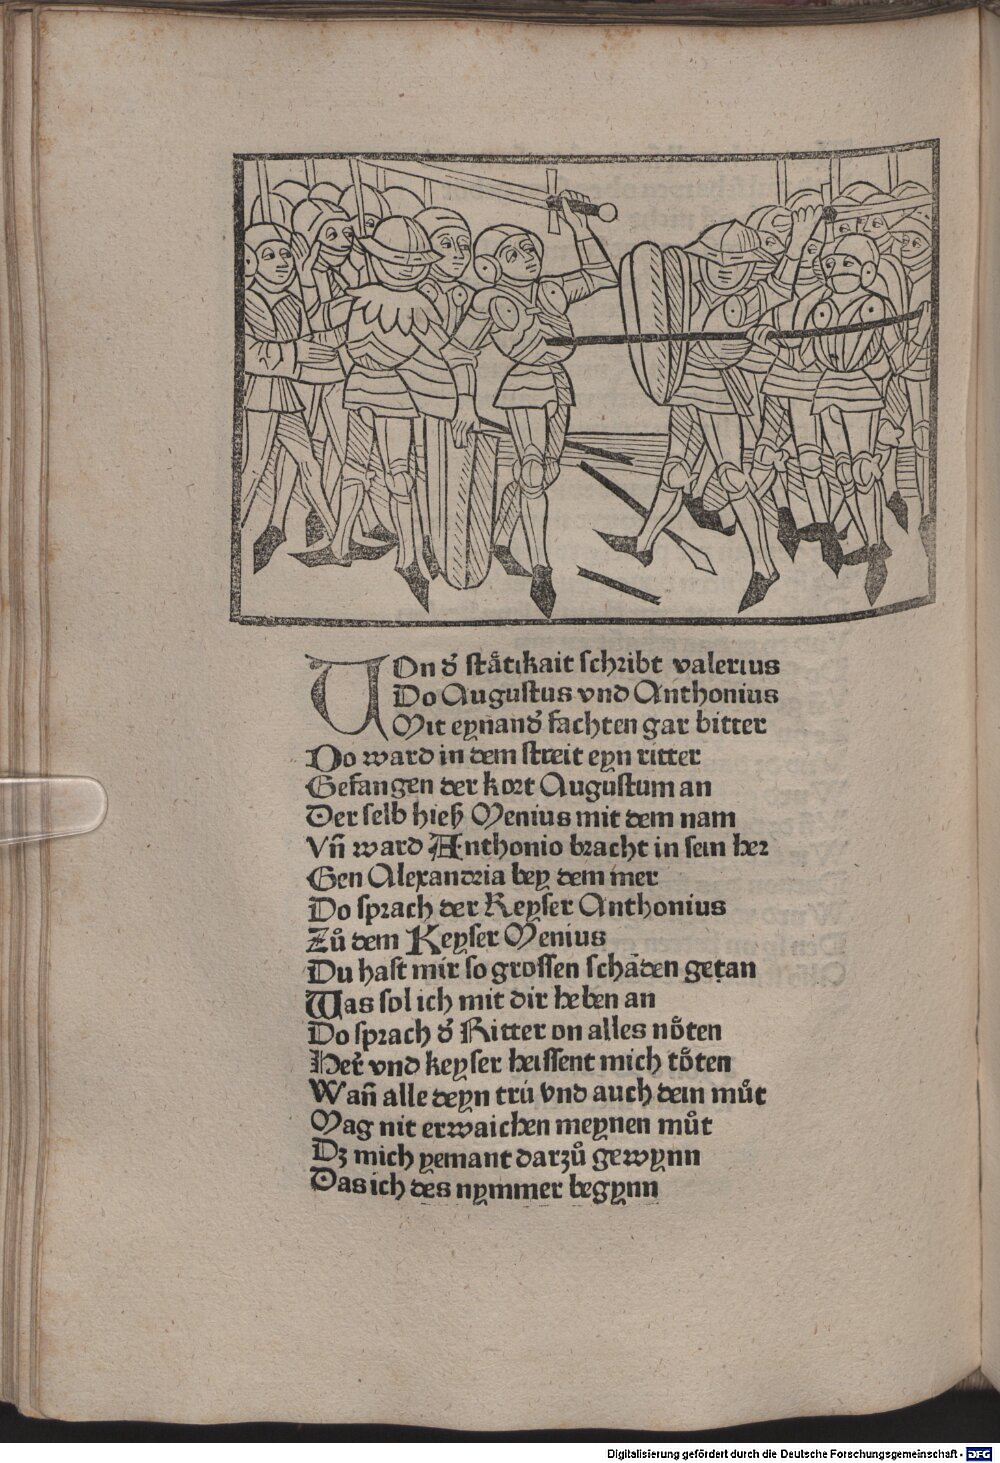 VOn dˢ ståtikait schribt valerius
Do Augustus vnd Anthonius
Mit eynandˢ fachten gar bitter
Do ward in dem streit eyn ritter
Gefangen der kort Augustum an
Der selb hieß Menius mit dem nam
Vn̄ ward Anthonio bracht in sein her
Gen Alexandria bey dem mer
Do sprach der Keyser Anthonius
Zů dem Keyser Menius
Du hast mir so grossen schaden getan
Was sol ich mit dir heben an
Do sprach dˢ Ritter on alles nöten
Herˢ vnd keyser heissent mich töten
Wan̄ alle deyn trü vnd auch dein můt
Mag nit erwaichen meynen můt
Dz mich yemant darzů gewynn
Das ich des nymmer begynn
Digitalisierung gefördert durch die Deutsche Forschungsgemeinschaft - DFG